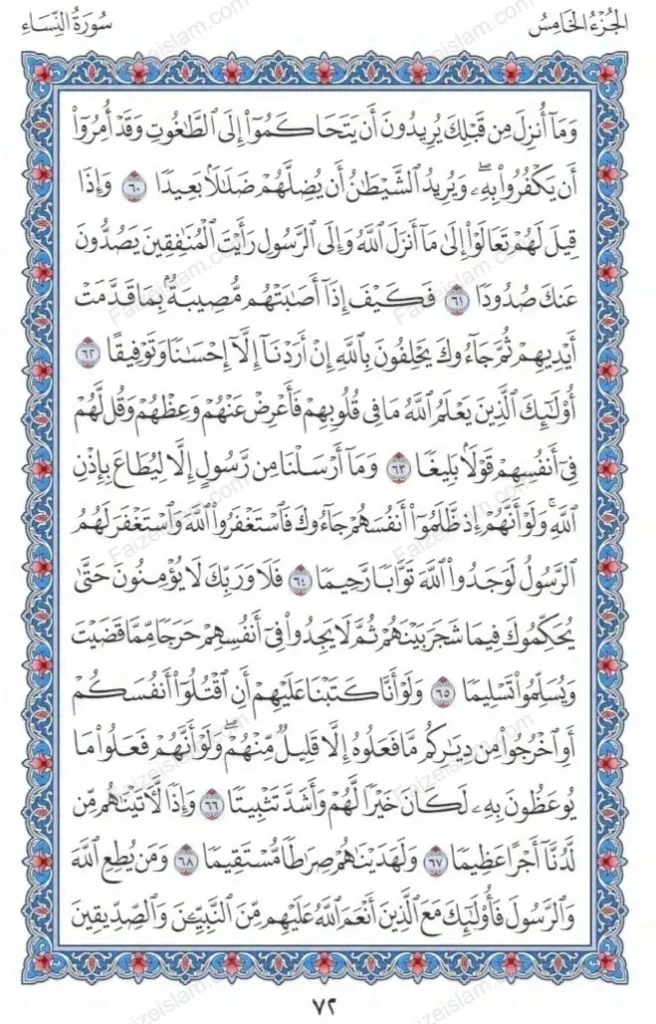 سُورَةُ النِّسَاءِ
الجُزْءُ الخَامِسُ
وَمَآ أُنزِلَ مِن قَبْلِكَ يُرِيدُونَ أَن يَتَحَاكَمُوٓا۟ إِلَى ٱلطَّٰغُوتِ وَقَدْ أُمِرُوٓا۟
أَن يَكْفُرُوا۟ بِهِۦۖ وَيُرِيدُ ٱلشَّيْطَٰنُ أَن يُضِلَّهُمْ ضَلَٰلَۢا بَعِيدًا ٦٠ وَإِذَا
قِيلَ لَهُمْ تَعَالَوْا۟ إِلَىٰ مَآ أَنزَلَ ٱللَّهُ وَإِلَى ٱلرَّسُولِ رَأَيْتَ ٱلْمُنَٰفِقِينَ يَصُدُّونَ
عَنكَ صُدُودًا ٦١ فَكَيْفَ إِذَآ أَصَٰبَتْهُم مُّصِيبَةٌۢ بِمَا قَدَّمَتْ
أَيْدِيهِمْ ثُمَّ جَآءُوكَ يَحْلِفُونَ بِٱللَّهِ إِنْ أَرَدْنَآ إِلَّآ إِحْسَٰنًا وَتَوْفِيقًا ٦٢
أُو۟لَٰٓئِكَ ٱلَّذِينَ يَعْلَمُ ٱللَّهُ مَا فِى قُلُوبِهِمْ فَأَعْرِضْ عَنْهُمْ وَعِظْهُمْ وَقُل لَّهُمْ
فِىٓ أَنفُسِهِمْ قَوْلَۢا بَلِيغًا ٦٣ وَمَآ أَرْسَلْنَا مِن رَّسُولٍ إِلَّا لِيُطَاعَ بِإِذْنِ
ٱللَّهِۚ وَلَوْ أَنَّهُمْ إِذ ظَّلَمُوٓا۟ أَنفُسَهُمْ جَآءُوكَ فَٱسْتَغْفَرُوا۟ ٱللَّهَ وَٱسْتَغْفَرَ لَهُمُ
ٱلرَّسُولُ لَوَجَدُوا۟ ٱللَّهَ تَوَّابًا رَّحِيمًا ٦٤ فَلَا وَرَبِّكَ لَا يُؤْمِنُونَ حَتَّىٰ
يُحَكِّمُوكَ فِيمَا شَجَرَ بَيْنَهُمْ ثُمَّ لَا يَجِدُوا۟ فِىٓ أَنفُسِهِمْ حَرَجًا مِّمَّا قَضَيْتَ
وَيُسَلِّمُوا۟ تَسْلِيمًا ٦٥ وَلَوْ أَنَّا كَتَبْنَا عَلَيْهِمْ أَنِ ٱقْتُلُوٓا۟ أَنفُسَكُمْ
أَوِ ٱخْرُجُوا۟ مِن دِيَٰرِكُم مَّا فَعَلُوهُ إِلَّا قَلِيلٌ مِّنْهُمْۖ وَلَوْ أَنَّهُمْ فَعَلُوا۟ مَا
يُوعَظُونَ بِهِۦ لَكَانَ خَيْرًا لَّهُمْ وَأَشَدَّ تَثْبِيتًا ٦٦ وَإِذًا لَّءَاتَيْنَٰهُم مِّن
لَّدُنَّآ أَجْرًا عَظِيمًا ٦٧ وَلَهَدَيْنَٰهُمْ صِرَٰطًا مُّسْتَقِيمًا ٦٨ وَمَن يُطِعِ ٱللَّهَ
وَٱلرَّسُولَ فَأُو۟لَٰٓئِكَ مَعَ ٱلَّذِينَ أَنْعَمَ ٱللَّهُ عَلَيْهِم مِّنَ ٱلنَّبِيِّۦنَ وَٱلصِّدِّيقِينَ
٧٢
Faizeislam.com